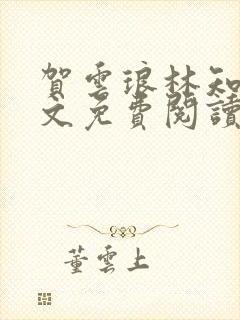 賀雲琅林知
文免費閱讀
董雲上